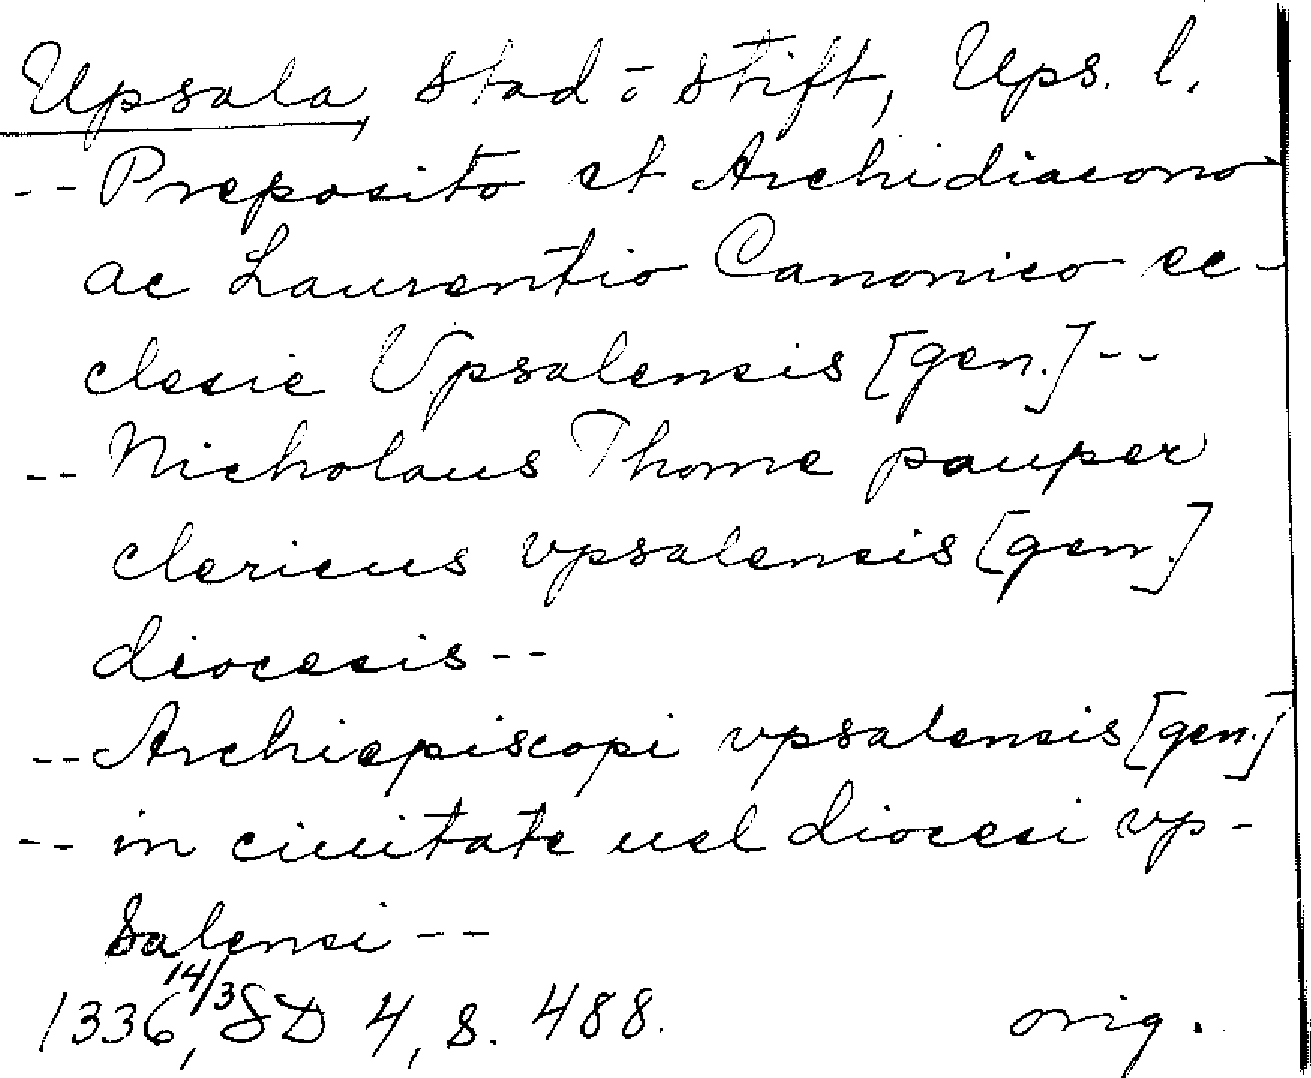 Upsala, stad o. stift, Ups. l.
-- Preposito et Archidiacono
ac Laurentio Canonico ec-
clesie Vpsalensis [gen.] --
-- Nicholaus Thome pauper
clericus vpsalensis [gen.]
diocesis --
-- Archiepiscopi vpsalensis [gen.]
-- in ciuitate uel diocesi vp-
salensi --
1336, 14/3 SD 4, s. 488. orig.